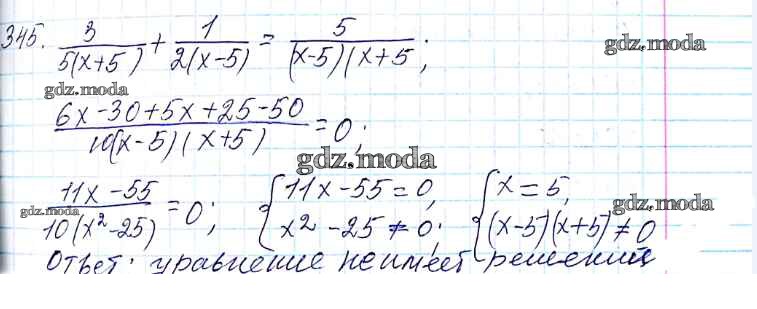 345. 3/(5(x+5)) + 1/(2(x-5)) = 5/((x-5)(x+5;
gdz.moda
gdz.moda
(6x-30+5x+25-50)/(10(x-5)(x+5)) = 0;
gdz.moda
(11x-55)/(10(x²-25)) = 0; { 11x-55=0, x²-25≠0; { x=5, (x-5)(x+5)≠0
gdz.moda
gdz.moda
Ответ: уравнение не имеет решений